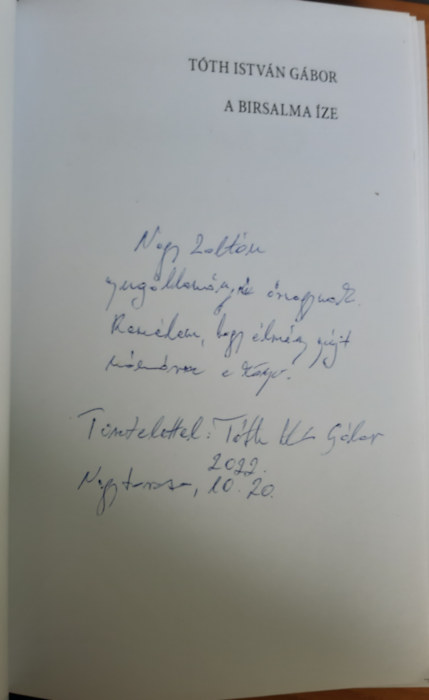 TÓTH ISTVÁN GÁBOR
A BIRSALMA ÍZE
Nagy Zoltán
nyugállományú őrnagynak.
Remélem, hogy élményt nyújt
számára e könyv.
Tisztelettel: Tóth Gábor
2022.
Nagytarcsa, 10. 20.